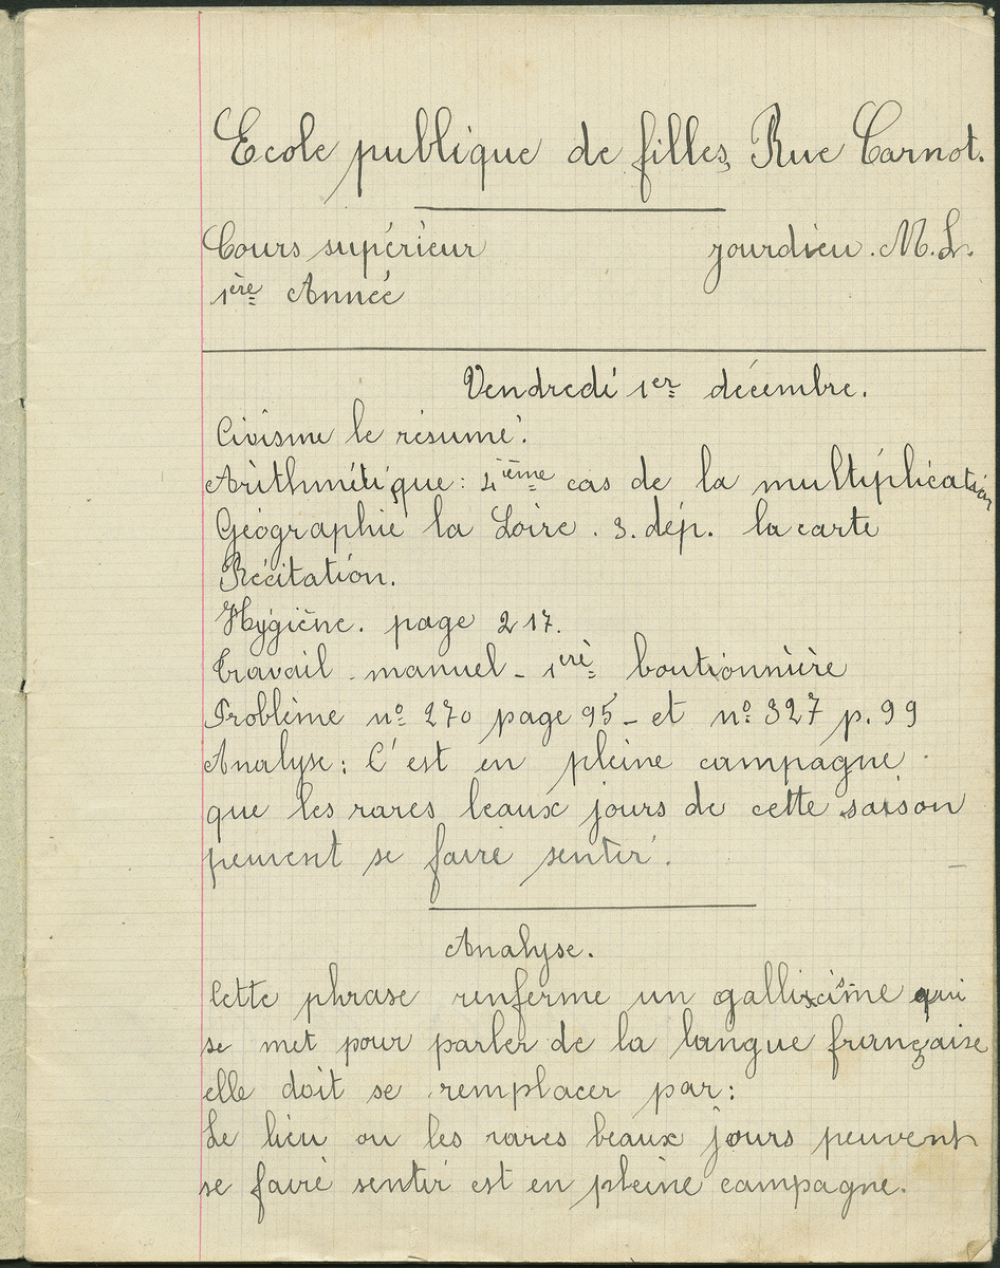 Ecole publique de filles, Rue Carnot.
Cours supérieur jourdieu. M. L.
1ère Année
Vendredi 1er décembre.
Civisme le résumé.
Arithmétique: 4ième cas de la multiplication
Géographie la Loire. 3. dép. la carte
Récitation.
Hygiène. page 217.
Travail manuel - 1ère boutionnière
Problème nº 270 page 95 - et nº 327 p. 99
Analyse: C'est en pleine campagne
que les rares beaux jours de cette saison
peuvent se faire sentir.
Analyse.
Cette phrase renferme un gallicisme qui
se met pour parler de la langue française
elle doit se remplacer par:
Le lieu ou les rares beaux jours peuvent
se faire sentir est en pleine campagne.